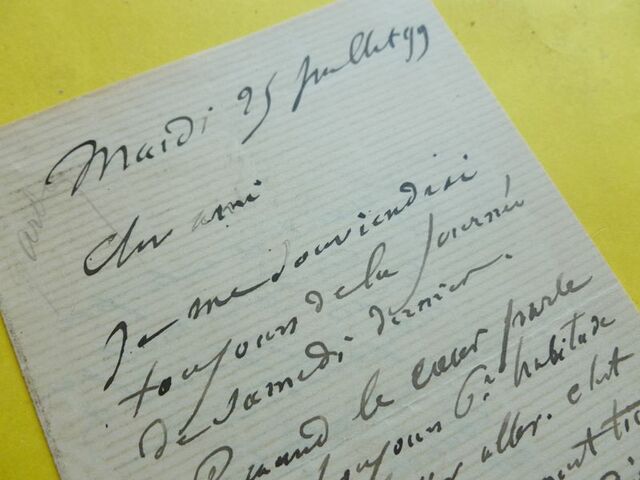 Mardi 25 Juillet 99
Cher ami
Je me souviendrai
toujours de la journée
de samedi dernier.
Quand le cœur parle
toujours l'habitude
aller. c'est